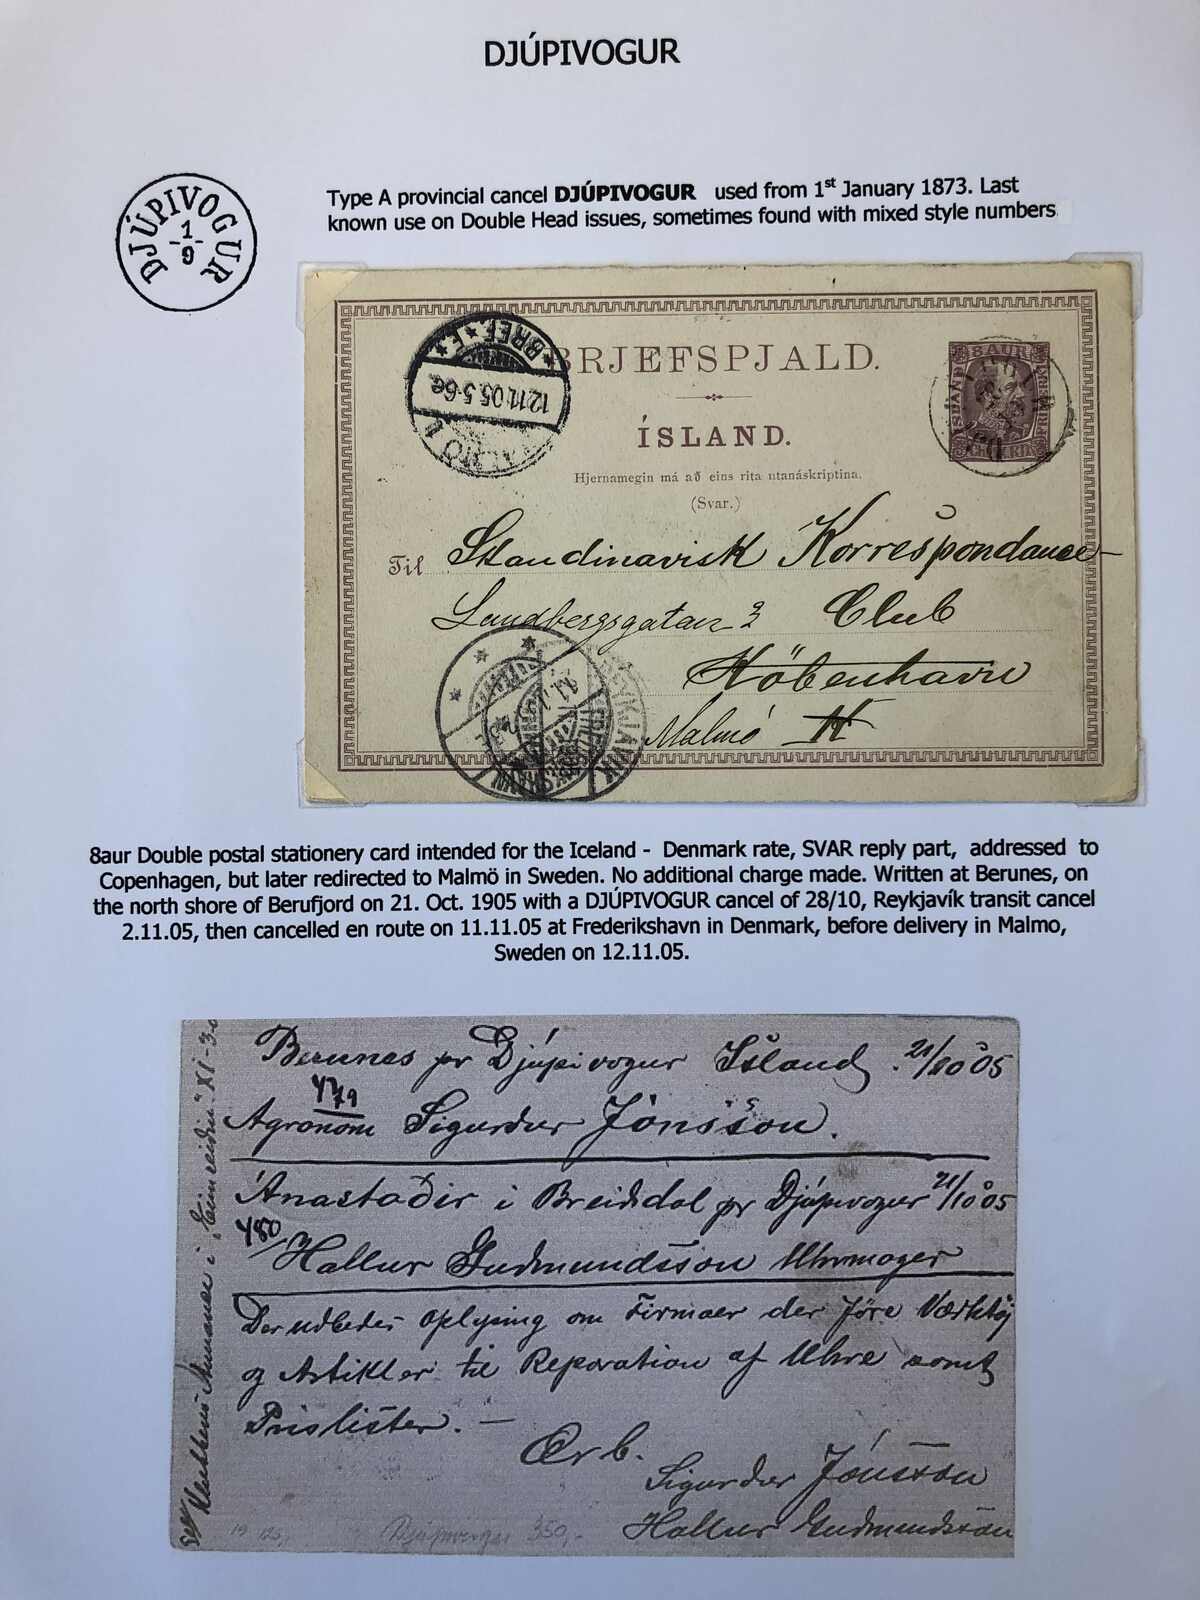 DJÚPIVOGUR
DJÚPIVOGUR
1
9
Type A provincial cancel DJÚPIVOGUR used from 1st January 1873. Last
known use on Double Head issues, sometimes found with mixed style numbers
BREF. E.
12.11.05.5-6e
MALMÖ 1
BRJEFSPJALD.
ÍSLAND.
Hjernamegin má að eins rita utanáskriptina.
(Svar.)
8 AUR
ÍSLAND
Til Skandinavisk Korrespondance-
Lundbergsgatan 3 Club
Köbenhavn
Malmö
REYKJAVIK
FREDERIKSHAVN
8aur Double postal stationery card intended for the Iceland - Denmark rate, SVAR reply part, addressed to
Copenhagen, but later redirected to Malmö in Sweden. No additional charge made. Written at Berunes, on
the north shore of Berufjord on 21. Oct. 1905 with a DJÚPIVOGUR cancel of 28/10, Reykjavík transit cancel
2.11.05, then cancelled en route on 11.11.05 at Frederikshavn in Denmark, before delivery in Malmo,
Sweden on 12.11.05.
Berunes pr Djúpivogur Ísland. 21/10 05
479
Agronom Sigurdur Jónsson.
Ánastaðir i Breiddal pr Djúpivogur 21/10 05
480
Hallur Gudmundsson Uhrmager
Der udbedes Oplysing om Firmaer der före Værktöj
og Artikler til Reparation af Uhre samt
Prislister. —
Ærb.
Sigurdur Jónsson
Hallur Gudmundsson
Djúpivogur 350,-